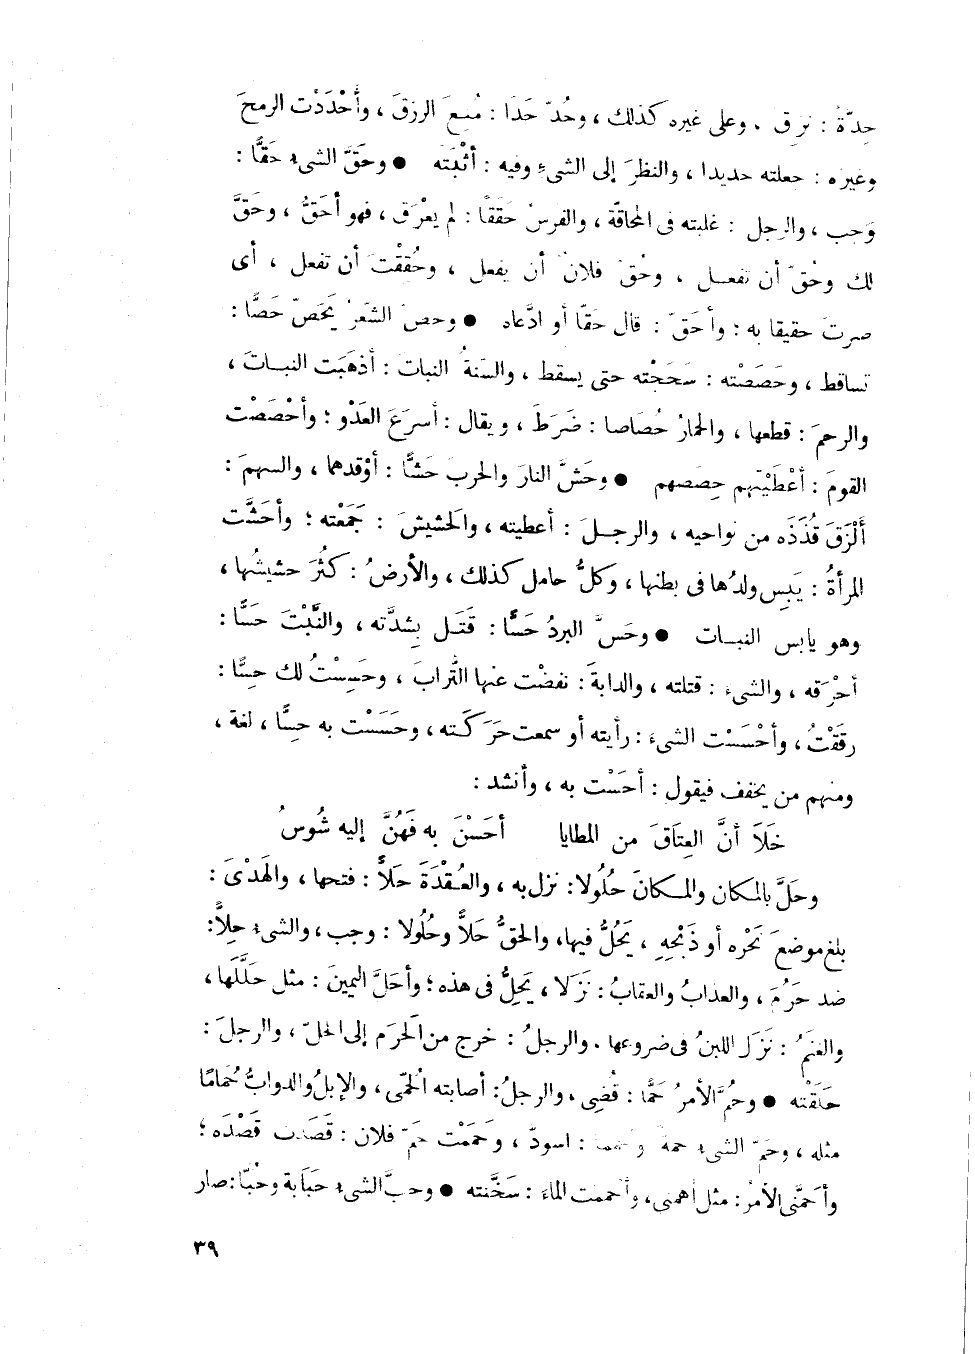 حِدّةً : نزق . وعلى غيره كذلك ، وحُدّ حَدًا : مُنِعَ الرزقَ ، وأَحْدَدْت الرمحَ
وغيره : جعلته حديدا ، والنظرَ إلى الشىءِ وفيه : أثْبَتَه ● وحَقَّ الشىء حَقًّا :
وَجب ، والرجل : غلبته فى المحاقّة ، والفرسُ حَقَقًا : لم يعْرَق ، فهو أحَقُّ ، وحَقَّ
لك وحُقّ أن تفعل ، وحُقّ فلانٌ أن يفعل ، وحُقِقْتَ أن تفعل ، أى
صرتَ حقيقا به : وأحَقّ : قال حَقّا أو ادَّعاه ● وحصّ الشعَرُ يَحَصّ حَصًّا :
تساقط ، وحَصَصْته : سَحَجْته حتى يسقط ، والسّنةُ النباتَ : أذهَبَت النبـاتَ ،
والرحمَ : قطعها ، والحمارُ حُصَاصا : ضَرَطَ ، ويقال : أسرَعَ العَدْوَ ؛ وأحْصَصْت
القومَ : أعْطَيْتهم حِصَصهم ● وحَشَّ النارَ والحربَ حَشًّا : أوْقدهما ، والسهمَ :
أَلْزَقَ قُذَذَه من نواحيه ، والرجـلَ : أعطيته ، والحَشيشَ : جَمَعْته ؛ وأحَشَّت
المرأةُ : يَبِس ولدُها فى بطنها ، وكلُّ حامل كذلك ، والأرضُ : كثُرَ حشيشُها ،
وهو يابس النبـات ● وحَسَّ البردُ حَسًّا : قَتَـل بِشدَّته ، والنَّبْتَ حَسًّا :
أحْرَقه ، والشىءَ : قتلته ، والدابةَ : نفضْت عنها التُّرابَ ، وحَسِسْتُ لك حِسًّا :
رقَقْتُ ، وأحْسَسْت الشىءَ : رأيته أو سمعت حَرَكَـته ، وحَسَسْت به حِسًّا ، لغة ،
ومنهم من يخفف فيقول : أحَسْت به ، وأنشد :
خَلَا أنَّ العِتَاقَ من المطايا أحَسْنَ به فَهُنَّ إليه شُوسُ
وحَلَّ بالمكان والمـكانَ حُلُولا : نزل به ، والعُـقْدَةَ حَلاًّ : فتحها ، والهَدْىَ :
بلغ موضعَ نَحْره أو ذَبْحِهِ ، يَحُلُّ فيها ، والحقُّ حَلاًّ وحُلُولا : وجب ، والشىء حِلاًّ :
ضد حَرُمَ ، والعذابُ والعقابُ : نَزَلا ، يَحِلُّ فى هذه ؛ وأحَلَّ اليمينَ : مثل حَلَّلَها ،
والغنمُ : نَزَلَ اللبنُ فى ضروعها . والرجلُ : خرج من الحَرَم إلى الحلّ ، والرجلَ :
حَلَقْته ● وحُمَّ الأمرُ حَمًّا : قُضِى ، والرجلُ : أصابته الُحمّى ، والإبلُ والدوابُّ حُمَامًا
مثله ، وحَمّ الشىء حمة : اسودّ ، وحَمَمْت حَمّ فلان : قَصَدت قَصْدَه ؛
وأحَمَّنى الأمرُ : مثل أهمنى ، وأحممت الماءَ : سَخَّنته ● وحبَّ الشىء حَبَابة وحُبًّا : صار
٣٩